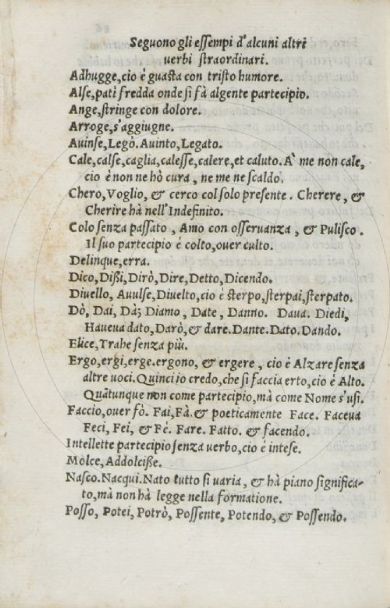 Seguono gli essempi d'alcuni altri
verbi straordinari.
Adhugge, cio è guasta con tristo humore.
Alse, patì fredda onde si fà algente partecipio.
Ange, stringe con dolore.
Arroge, s'aggiugne.
Auinse, Legò. Auinto, Legato.
Cale, calse, caglia, calesse, calere, et caluto. A' me non cale,
cio è non ne hò cura, ne me ne scaldo.
Chero, Voglio, & cerco col solo presente. Cherere, &
Cherire hà nell'Indefinito.
Colo senza passato, Amo con osseruanza, & Pulisco.
Il suo partecipio è colto, ouer culto.
Delinque, erra.
Dico, Dißi, Dirò, Dire, Detto, Dicendo.
Diuello, Auulse, Diuelto, cio è sterpo, sterpai, sterpato.
Dò, Dai, Dà; Diamo, Date, Danno. Daua. Diedi,
Haueua dato, Darò, & dare. Dante. Dato. Dando.
Elice, Trahe senza più.
Ergo, ergi, erge. ergono, & ergere, cio è Alzare senza
altre uoci. Quinci io credo, che si faccia erto, cio è Alto.
Quãtunque non come partecipio, mà come Nome s'usi.
Faccio, ouer fò. Fai, Fà. & poeticamente Face. Faceua
Feci, Fei, & Fè. Fare. Fatto. & facendo.
Intellette partecipio senza uerbo, cio è intese.
Molce, Addolciße.
Nasco. Nacqui. Nato tutto si uaria, & hà piano significa-
to, mà non hà legge nella formatione.
Posso, Potei, Potrò, Possente, Potendo, & Possendo.